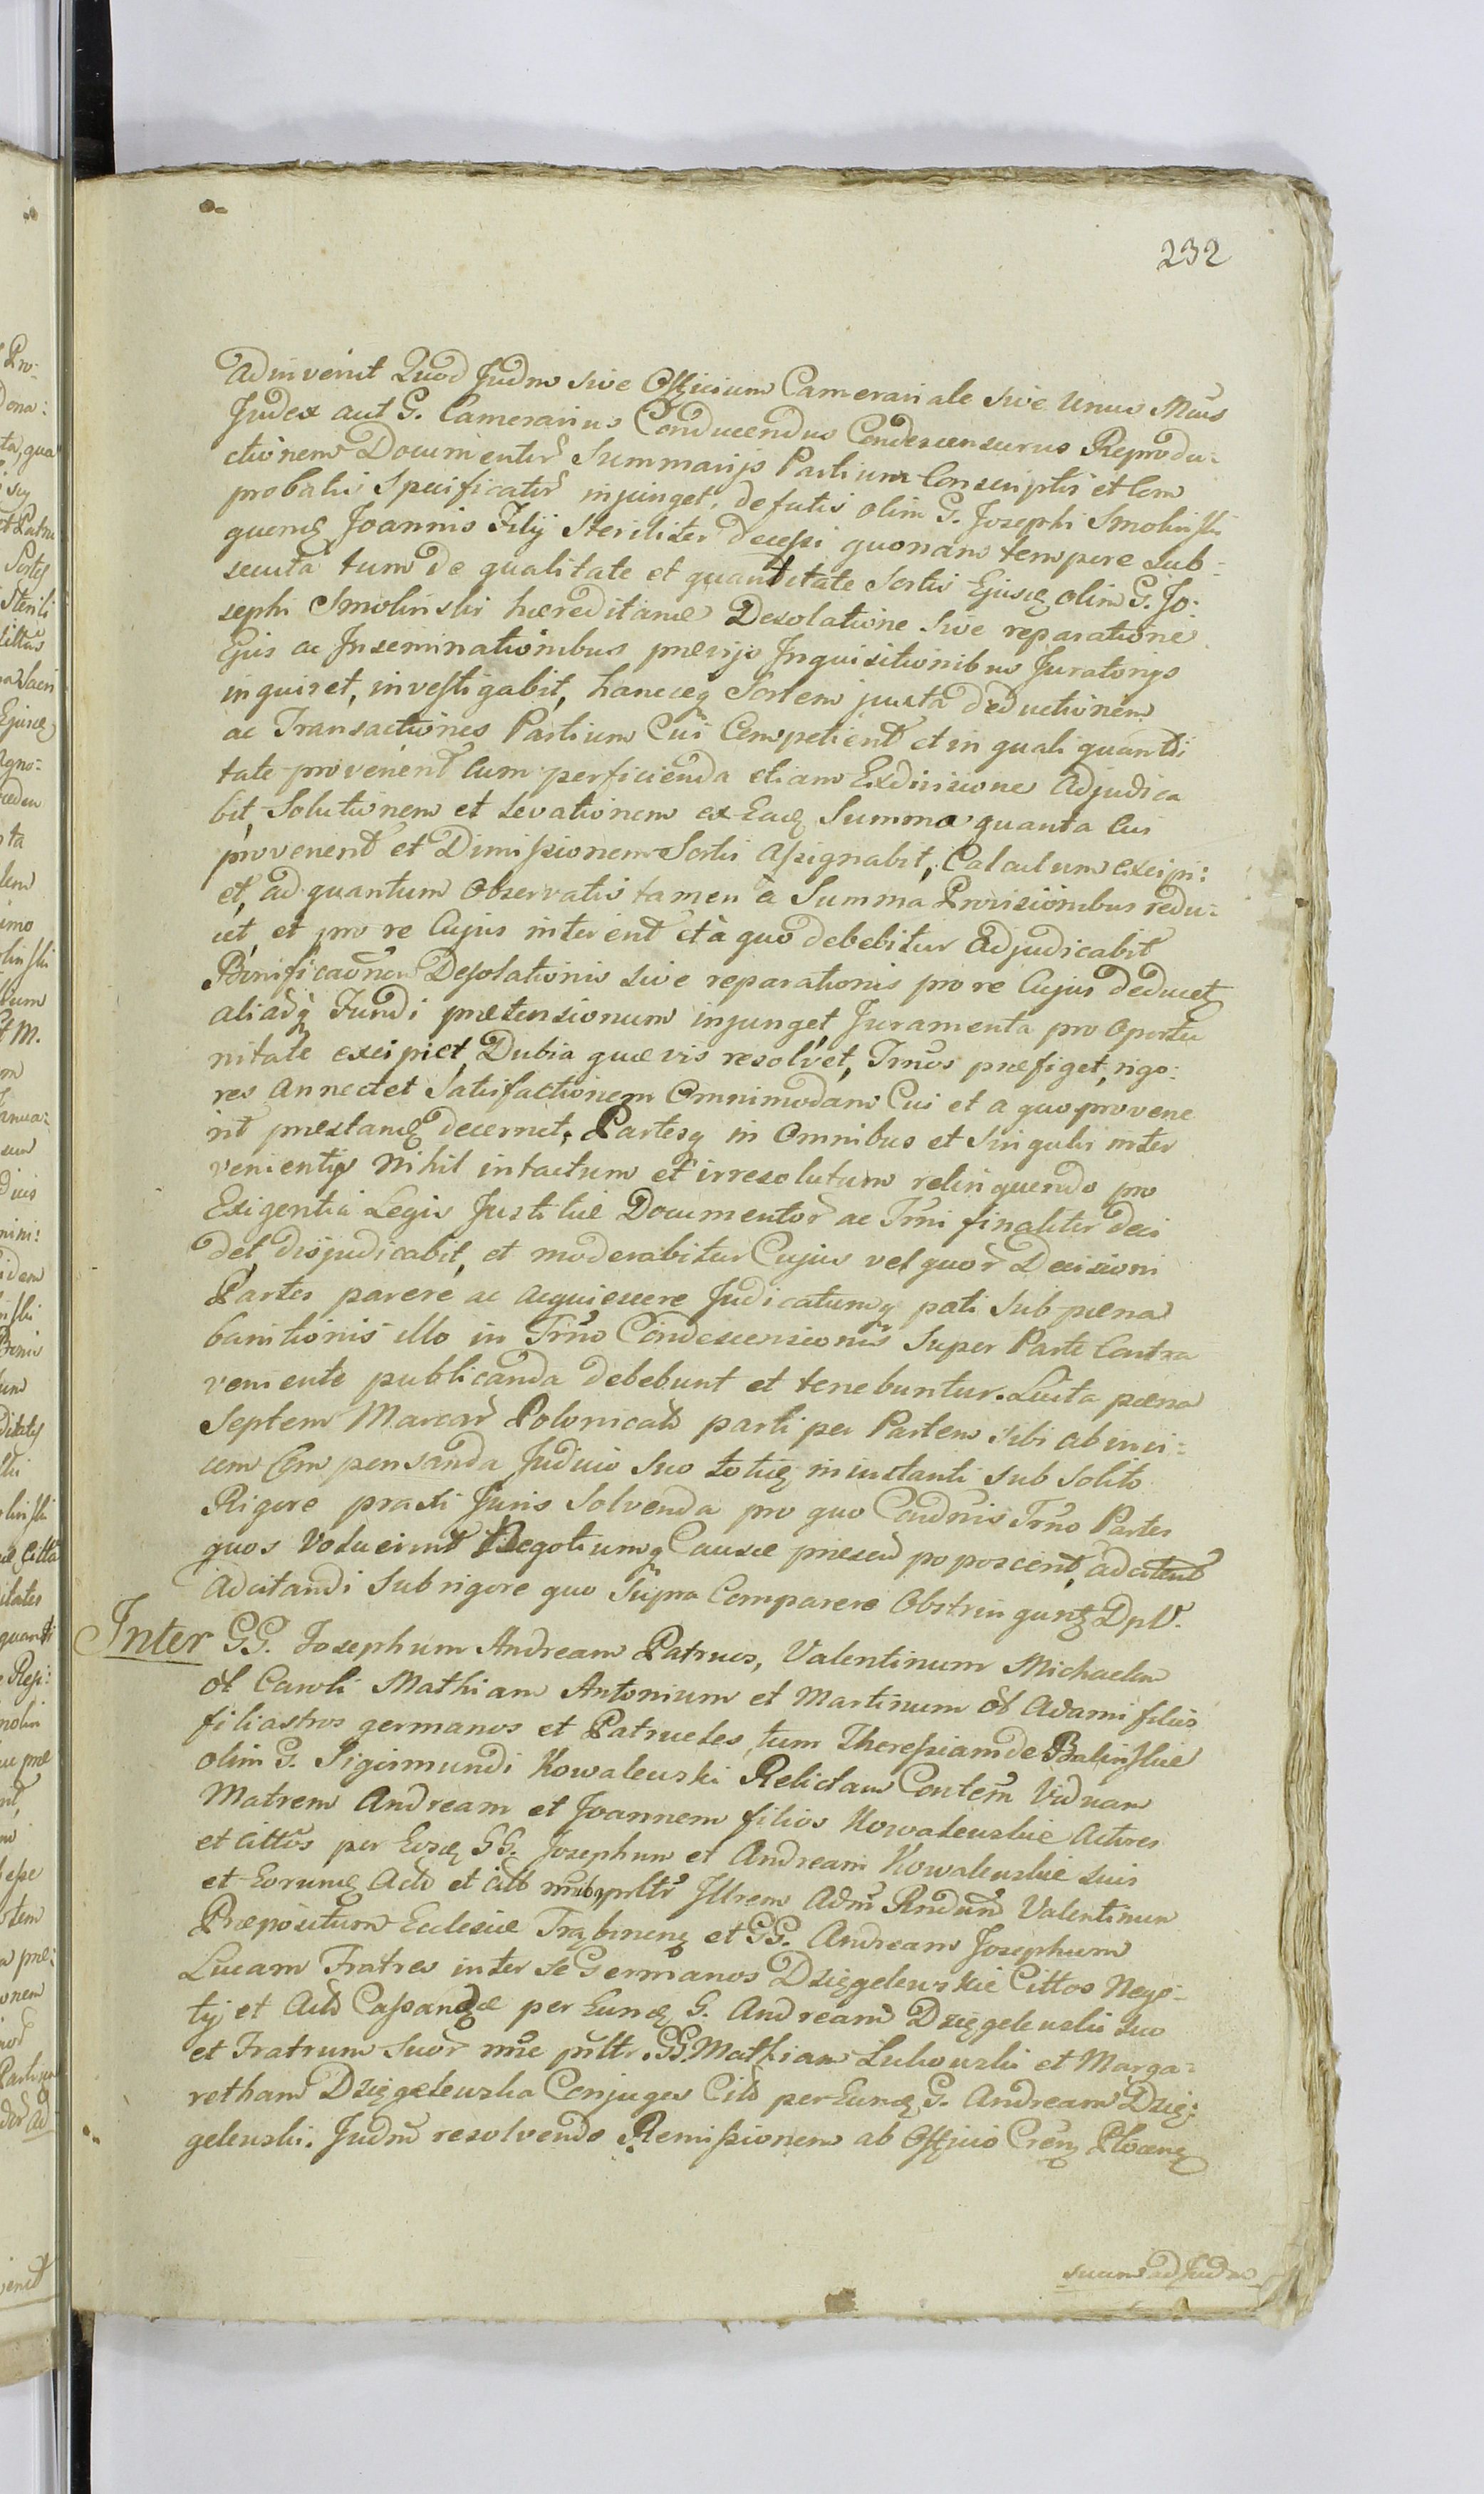 232
Adinvenit Quod Judm sive Officium Camerariale sive Unus Mcus
Judex aut G. Camerarius Conducendus Condescensurus Reprodu-
ctionem Documentor Summarijs Partium Conscriptis et Com
probatis Specificator injunget, de fatis olim G. Josephi Smolinski
quonq Joannis Filij Steriliter decessi quonam tempore sub-
secuta tum de qualitate et quantitate Sortis Ejusq olim G. Jo-
sephi Smolinski hæreditariæ Desolatione sive reparatione
Ejus ac Inseminationibus prævijs Inquisitionibus Juratorijs
inquiret, investigabit, hancceq Sortem juxta deductionem
ac Transactiones Partium Cui Competient et in quali quanti
tate provenent cum perficienda etiam Exdivisione Adjudica
bit, Solutionem et Levationem ex Eaq Summa quanta cui
provenent et Dimissionem Sortis Assignabit, Calculum excipi:
et, ad quantum Observatis tamen a Summa Provisionibus redu-
cet, et pro re Cujus interent et à quo debebitur Adjudicabit
Bonificaonem Desolationis sive reparationis pro re Cujus deducet
aliasq Fundi prætensionum injunget Juramenta pro Oportu
nitate excipiet, Dubia quævis resolvet, Trnos præfiget, rigo:
res annectet Satisfactionem Omnimodam Cui et a quo provene
rit præstanq decernet, Partesq in Omnibus et Singulis inter
venientijs Nihil intactum et irresolutum relinquendo pro
Exigentia Legis Justitiæ Documentor ac Trni finaliter deci
det, disjudicabit, et moderabitur Cujus vel quor Decisioni
Partes parere ac acquiescere Judicatumq pati sub pæna
banitionis illo in Trno Condescensionis Super Parte Contra
veniente publicanda debebunt et tenebuntur. Luita pæna
Septem Marcar Polonicals parti per Partem sibi ab invi-
cem Compensanda Judicio suo totiq in instanti sub solito
Rigore praxi Juris Solvenda pro quo Condnis Trno Partes
quos Voluerint Negotiumq Causæ præsens poposcent, adcitent
Adcitandi sub rigore quo Supra Comparere Obstringuntz DpV.
Inter GG. Josephum Andream Patruos, Valentinum Michaelem
ol Caroli Mathiam Antonium et Martinum ol Adami filios
filiastros germanos et Patrueles, tum Theressiam de Balinskie
olim G. Sigismundi Kowalewski Relictam Contem Viduam
Matrem Andream et Joannem filios Kowalewskie Actores
et cittos per Eosq GG. Josephum et Andream Kowalewskie suis
et Eorumq Actis et citt nnibq pnltr Illrem Adm Rndum Valentinum
Præpositum Ecclesiæ Trąbinenq et GG. Andream Josephum
Lucam Fratres inter se Germanos Dzięgelewskie Cittos Nego-
tij et Acts Cassandæ per Eunq G. Andream Dzięgelewski suo
et Fratrum suor nne pnltr. GG. Mathiam Lukowski et Marga-
retham Dzięgelewska Conjuges Cits per Eunq G. Andream Dzię-
gelewski. Judm resolvendo Remissionem ab Officio Crenq Plocenq
suum ad Judm